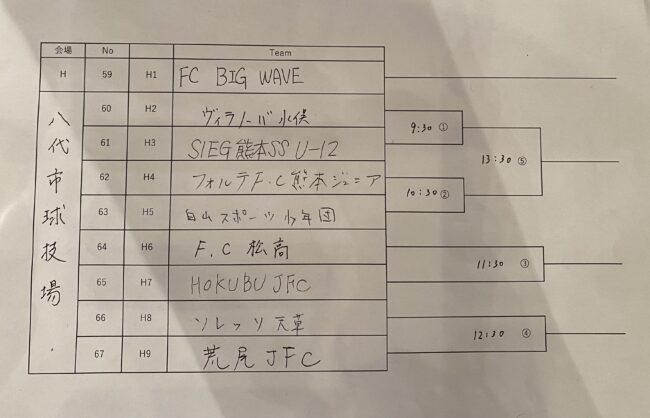 会場 No Team
H 59 H1 FC BIG WAVE
八代市球技場 60 H2 ヴィラノーバ水俣
61 H3 SIEG熊本SS U-12
62 H4 フォルテF.C熊本ジュニア
63 H5 白山スポーツ少年団
64 H6 F.C松高
65 H7 HOKUBU JFC
66 H8 ソレッソ天草
67 H9 荒尾JFC
9:30 ①
13:30 ⑤
10:30 ②
11:30 ③
12:30 ④